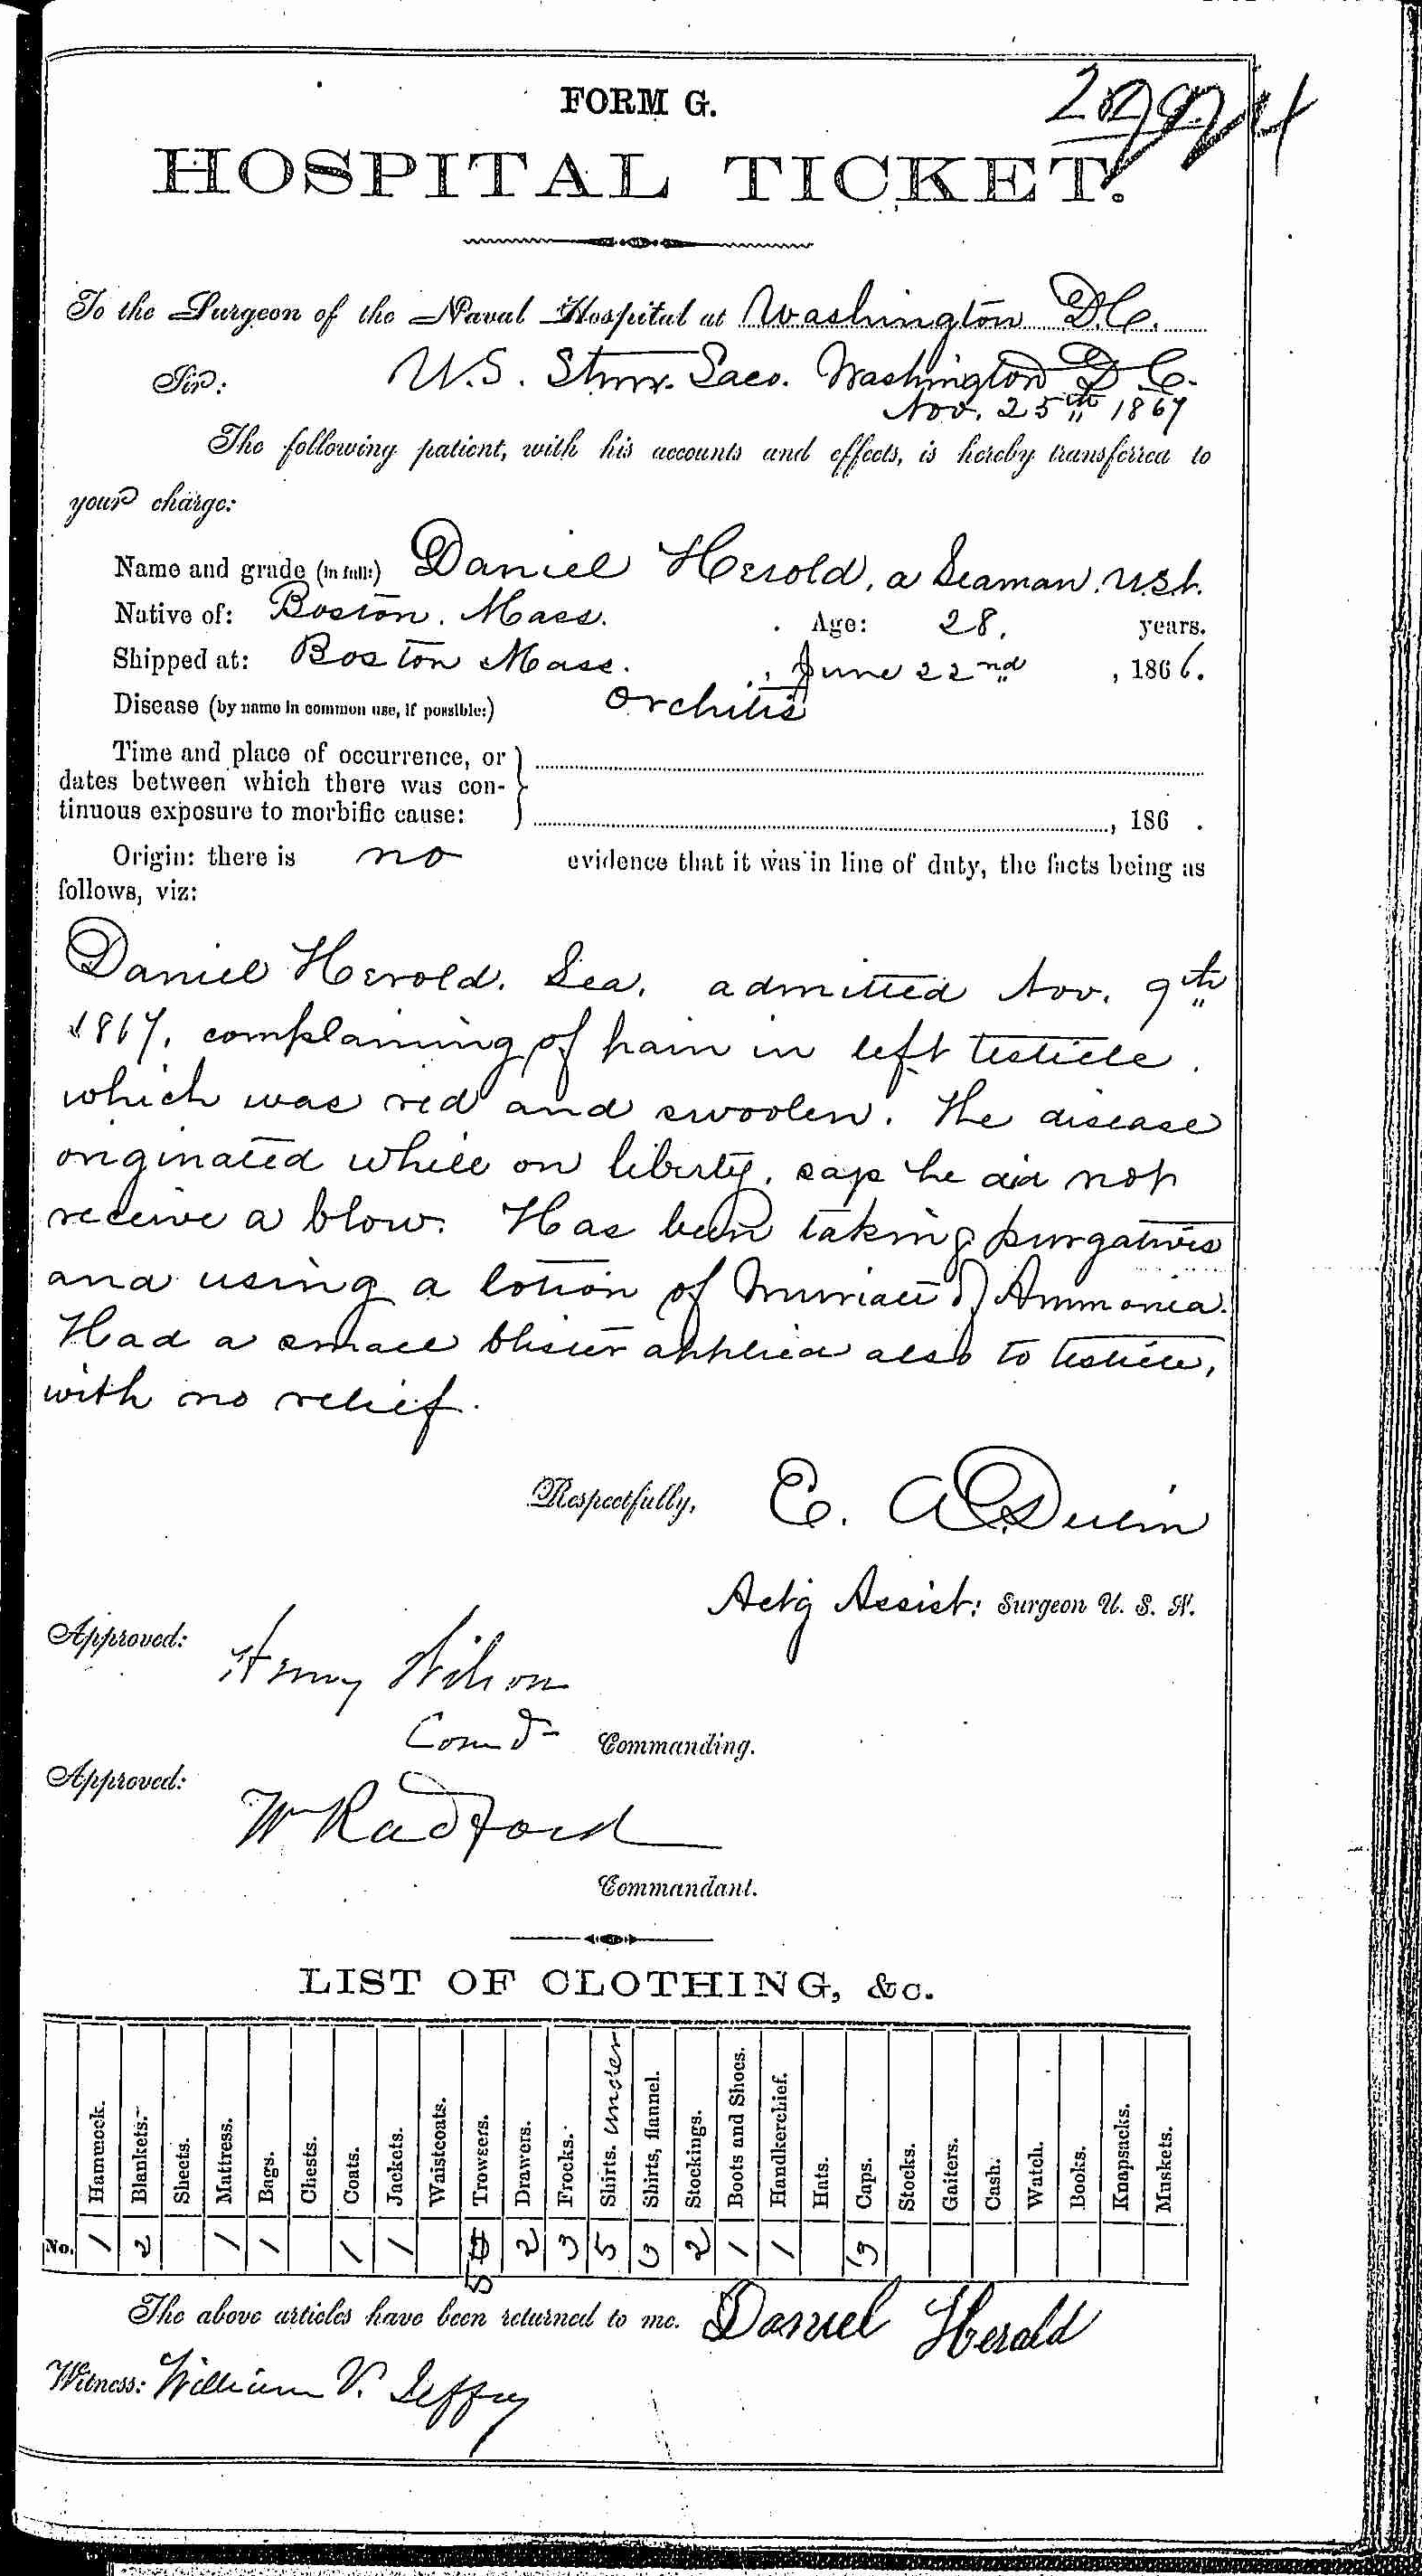 FORM G.
HOSPITAL TICKET.
To the Surgeon of the Naval Hospital at Washington D.C.
Sir: U.S. Stmr. Saco. Washington D.C.
Nov. 25th 1867
The following patient, with his accounts and effects, is hereby transferred to
your charge:
Name and grade (in full:) Daniel Herold, a Seaman. U.S.N.
Native of: Boston. Mass. Age: 28. years.
Shipped at: Boston Mass. , June 22nd , 1866.
Disease (by name in common use, if possible:) Orchitis
Time and place of occurrence, or
dates between which there was con-
tinuous exposure to morbific cause: , 186 .
Origin: there is no evidence that it was in line of duty, the facts being as
follows, viz:
Daniel Herold. Sea. admitted Nov. 9th
1867, complaining of pain in left testicle.
which was red and swoolen. The disease
originated while on liberty, says he did not
receive a blow. Has been taking purgatives
and using a lotion of Muriate of Ammonia.
Had a small blister applied also to testicle,
with no relief.
Respectfully, E. A.
Actg Assist: Surgeon U. S. N.
Approved: Henry Wilson
Comdr Commanding.
Approved:
W Radford
Commandant.
LIST OF CLOTHING, &c.
Hammock. Blankets. Sheets. Mattress. Bags. Chests. Coats. Jackets. Waistcoats. Trowsers. Drawers. Frocks. Shirts. under Shirts, flannel. Stockings. Boots and Shoes. Handkerchief. Hats. Caps. Stocks. Gaiters. Cash. Watch. Books. Knapsacks. Muskets.
No. 1 2 1 1 1 1 5 2 3 5 3 2 1 1 3
The above articles have been returned to me. Daniel Herald
Witness: William V. Jeffry